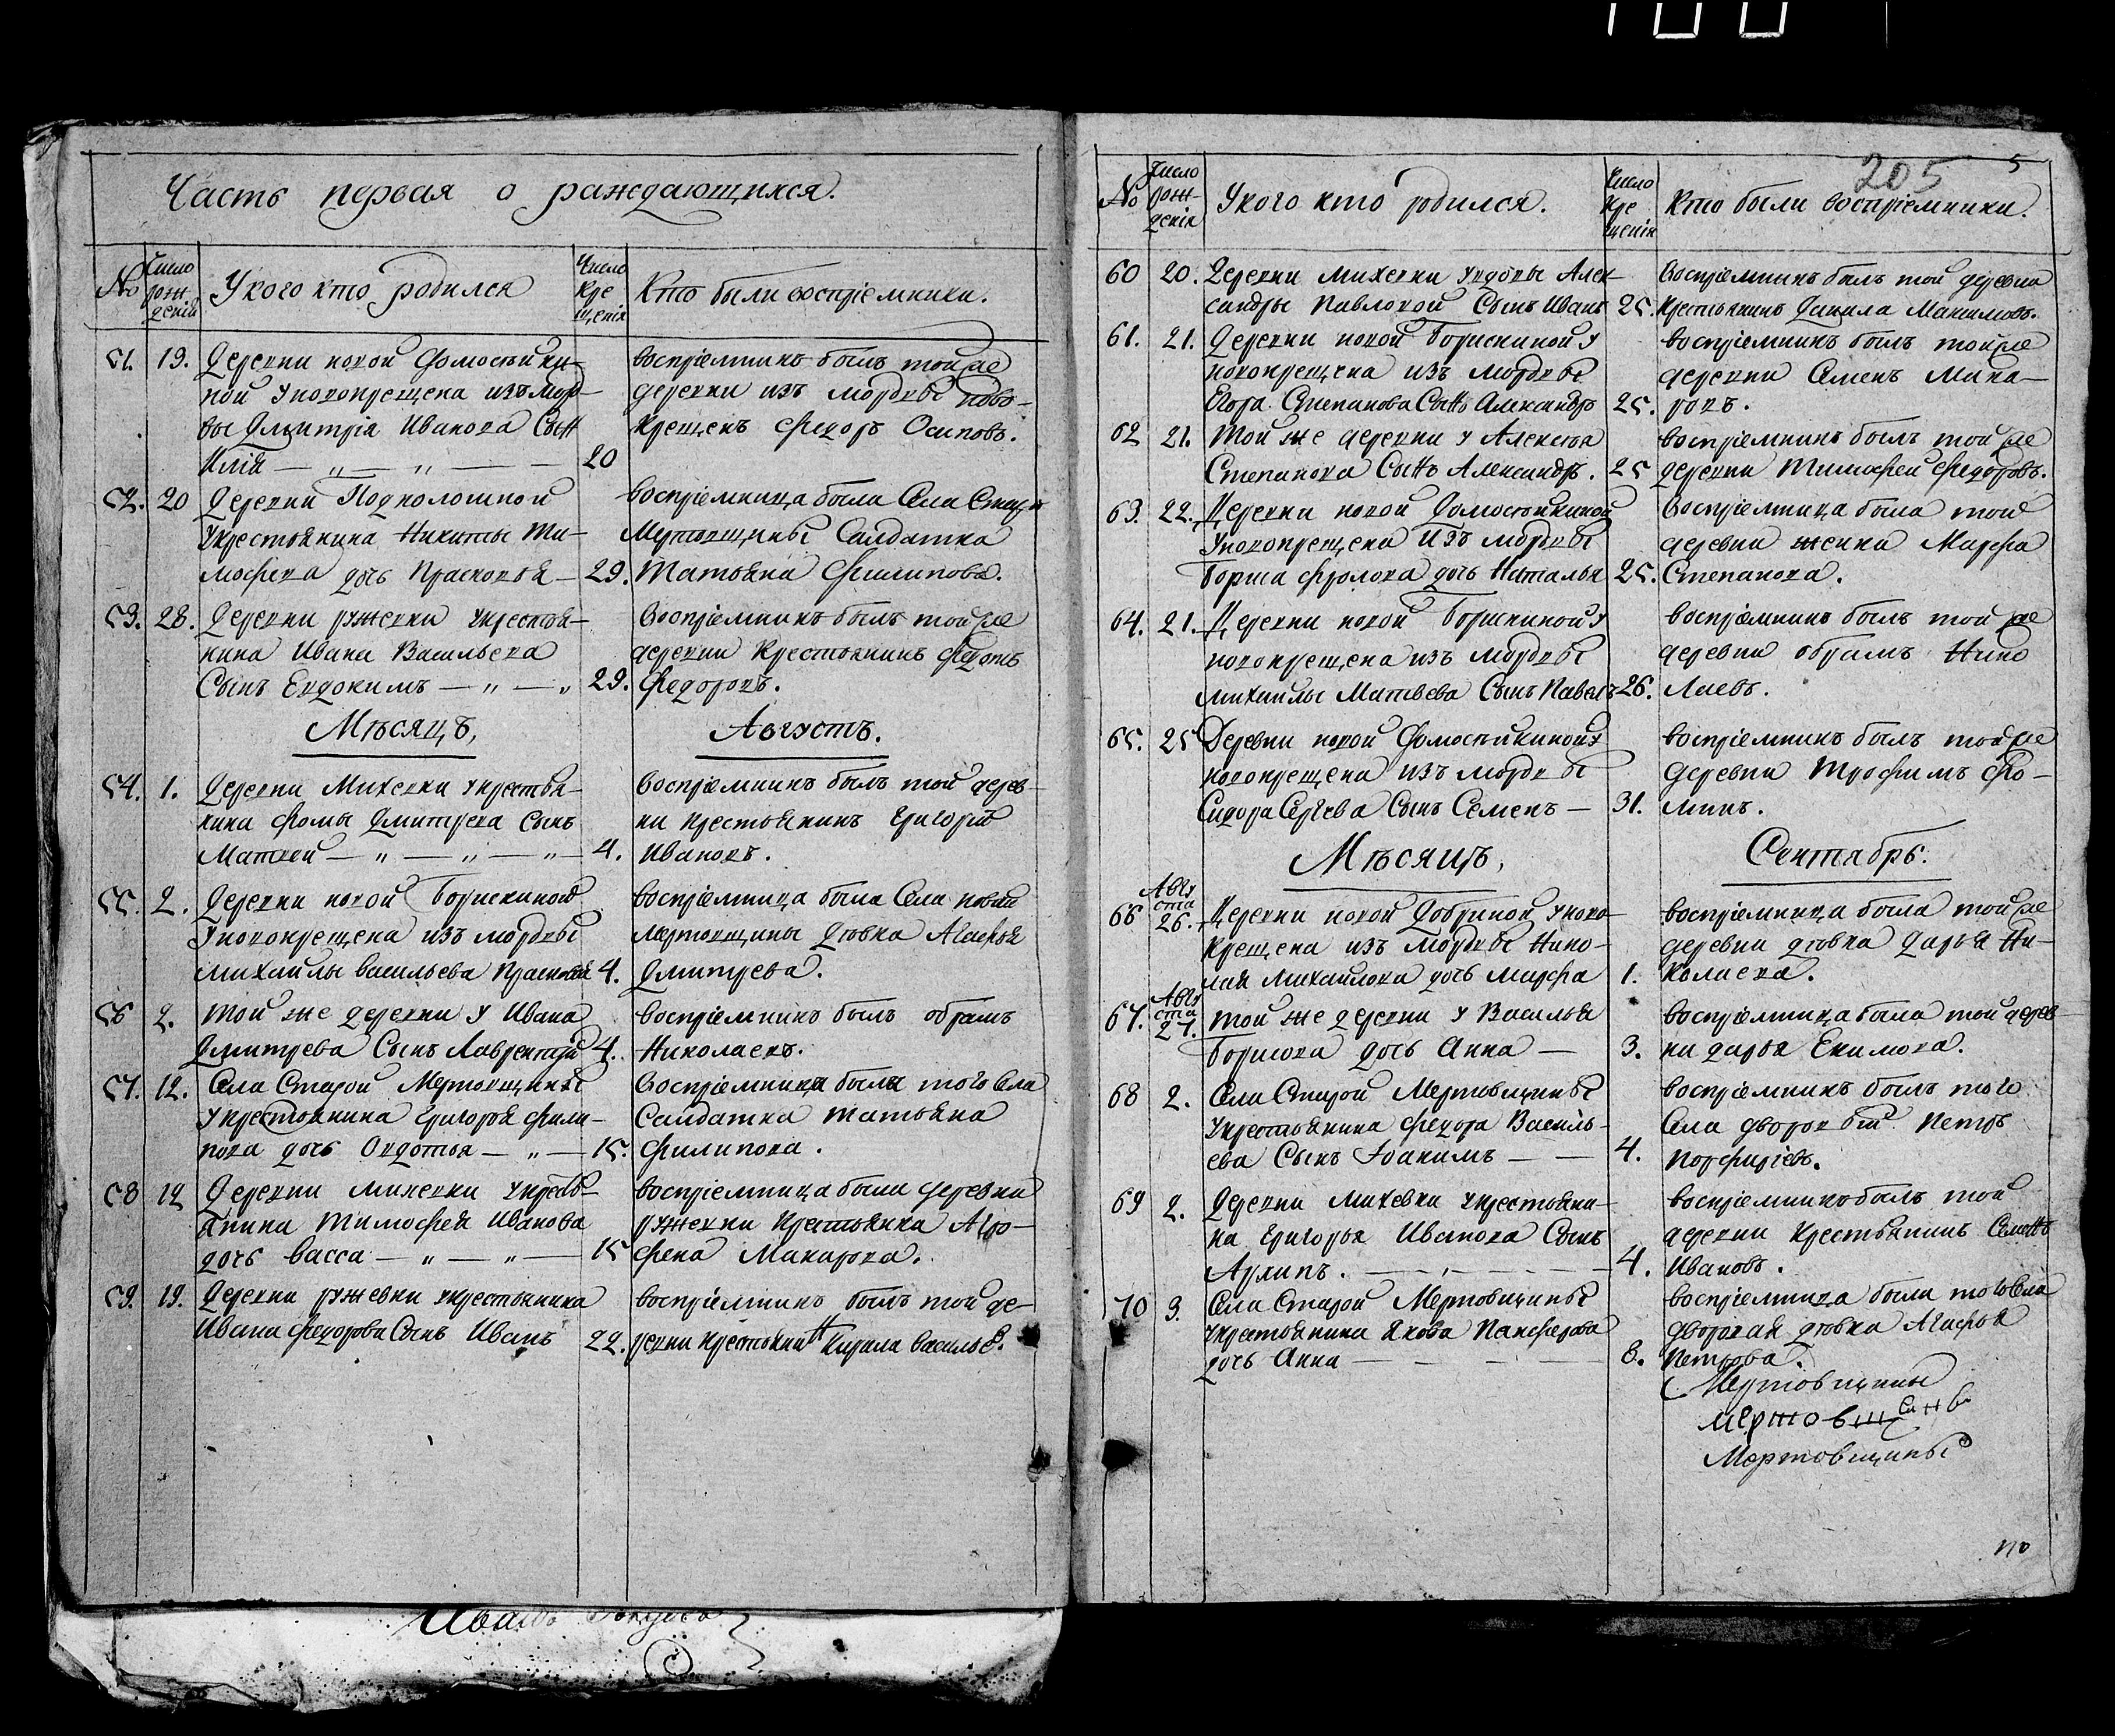 Часть первая о раждающихся.
№ Число рожденія Укого кто родился Число крещенія Кто были воспріемники.
51. 19. Деревни новой Фомостьики-
ной уновокрещена изъ морд-
вы Дмитріа Иванова Сынъ
Илія — „ — „ — — 20
воспріемникъ былъ той же
деревни изъ мордвы ново-
крещенъ Федоръ Осиповъ.
52. 20 Деревни Подколошной
укрестьянина Никиты Ти-
мофеева дочь Прасковья — 29.
воспріемница была Села Стар
Мертовщины Салдатка
Татьяна Филипова.
53. 28. Деревни ружевки укрестья-
нина Ивана Васильева
Сынъ Евдокимъ — „ — „ 29.
Воспріемникъ былъ той же
деревни Крестьянинъ Федотъ
Федоровъ.
Мѣсяцъ, Августъ.
54. 1. Деревни Михевки укрестья-
нина Фомы Дмитрева Сынъ
Матвей — „ — „ — „ — 4.
Воспріемникъ былъ той дерев-
ни крестьянинъ Григорій
Ивановъ.
55. 2. Деревни новой Борискиной
уновокрещена изъ мордвы
михаилы васильева Прасковья 4.
воспріемница была Села новой
мертовщины дѣвка Агафья
Дмитрева.
56 2. той же деревни у Ивана
Дмитрева Сынъ Лаврентій 4.
воспріемникъ былъ абрамъ
Николаевъ.
57. 12. Села Старой Мертовщины
укрестьянина Григорья фили-
пова дочь Овдотья — „ — 15.
воспріемница была того Села
Салдатка татьяна
филипова.
58 14 Деревни михевки укресть-
янина Тимофея Иванова
дочь васса — „ — „ — 15
воспріемница была деревни
ружевки Крестьянка Агро-
фена Макарова.
59. 19. Деревни ружевки укрестьянина
Ивана федорова Сынъ Иванъ 22.
воспріемникъ былъ той де-
ревни крестьянинъ Кирила василье.
205 5
№ Число рожденія Укого кто родился. Число крещенія Кто были воспріемники.
60 20. Деревни михевки увдовы Алек-
сандры Павловой Сынъ Иванъ 25.
воспріемникъ былъ той деревни
крестьянинъ Данила Максимовъ.
61. 21. Деревни новой Борискиной у
новокрещена изъ мордвы
Егора Степанова Сынъ Александръ 25.
воспріемникъ былъ той же
деревни Семенъ Мака-
ровъ.
62 21. той же деревни у Алексѣя
Степанова Сынъ Александръ. 25
воспріемникъ былъ той же
деревни Тимофей Федоровъ.
63. 22. Деревни новой Фомостьикиной
уновокрещена изъ мордвы
бориса фролова дочь Наталья 25.
воспріемница была той
деревни женка Марфа
Степанова.
64. 21. Деревни новой Борискиной у
новокрещена изъ мордвы
михаилы Матвева Сынъ Павелъ 26.
воспріемникъ былъ той же
деревни абрамъ Нико
лаевъ.
65. 25 Деревни новой Фомостьикиной у
новокрещена изъ мордвы
Сидора Сергѣева Сынъ Семенъ — 31.
воспріемникъ былъ той же
деревни Трофимъ Фо-
минъ.
Мѣсяцъ, Сентябрь.
66 Авгу
ста
26. Деревни новой Добриной уново-
крещена изъ мордвы Нико-
лая михайлова дочь марфа 1.
воспріемница была той же
деревни дѣвка дарья Ни-
колаева.
67. Авгу
ста
27. той же деревни у Василья
борисова дочь Анна — 3.
воспріемница была той дерев
ни дарья Екимова.
68 2. Села Старой Мертовщины
укрестьянина федора Василь-
ева Сынъ Іоакимъ — — 4.
воспріемникъ былъ того
Села дворовый Петръ
порфирьевъ.
69 2. Деревни михевки укрестьяни-
на Григорья Иванова Сынъ
Архипъ. — — — 4.
воспріемникъ былъ той
деревни Крестьянинъ Семенъ
Ивановъ.
70 3. Села Старой Мертовщины
укрестьянина Якова Панферова
дочь Анна — — — — 8.
воспріемница была того Села
дворовая дѣвка Агафья
Петрова.
Мертовщины
Мертовщины
Мертовщины
по